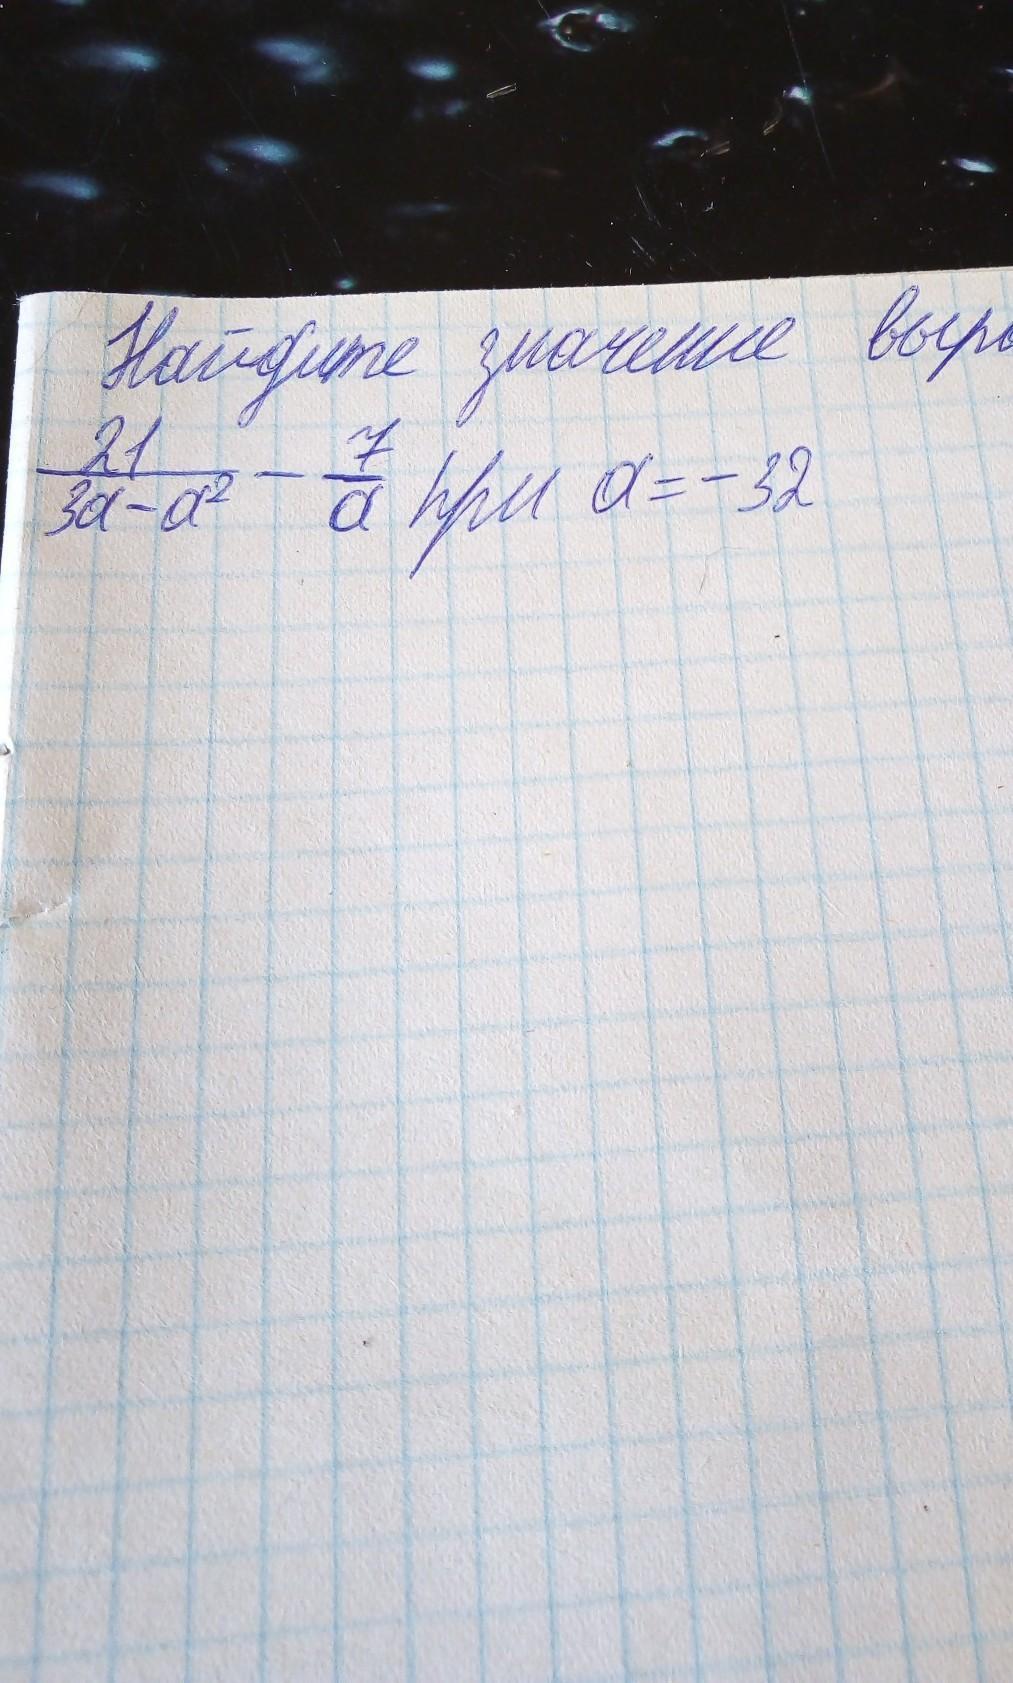 Найдите значение выра
21/(3a-a²) - 7/a при a=-32